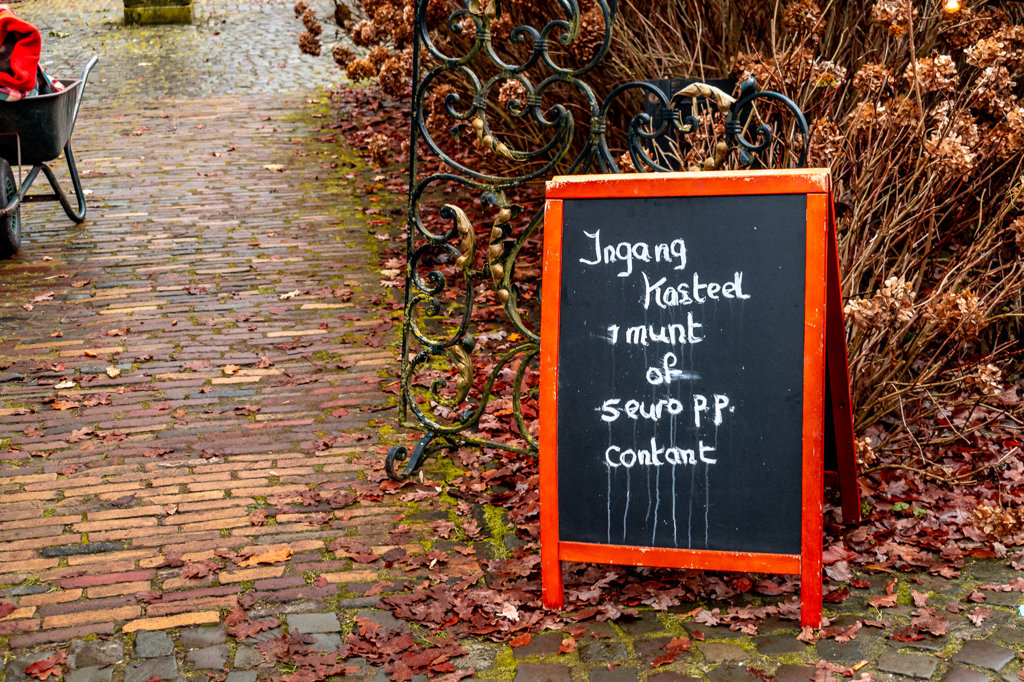 Ingang
Kasteel
1 munt
of
5 euro p.p.
contant